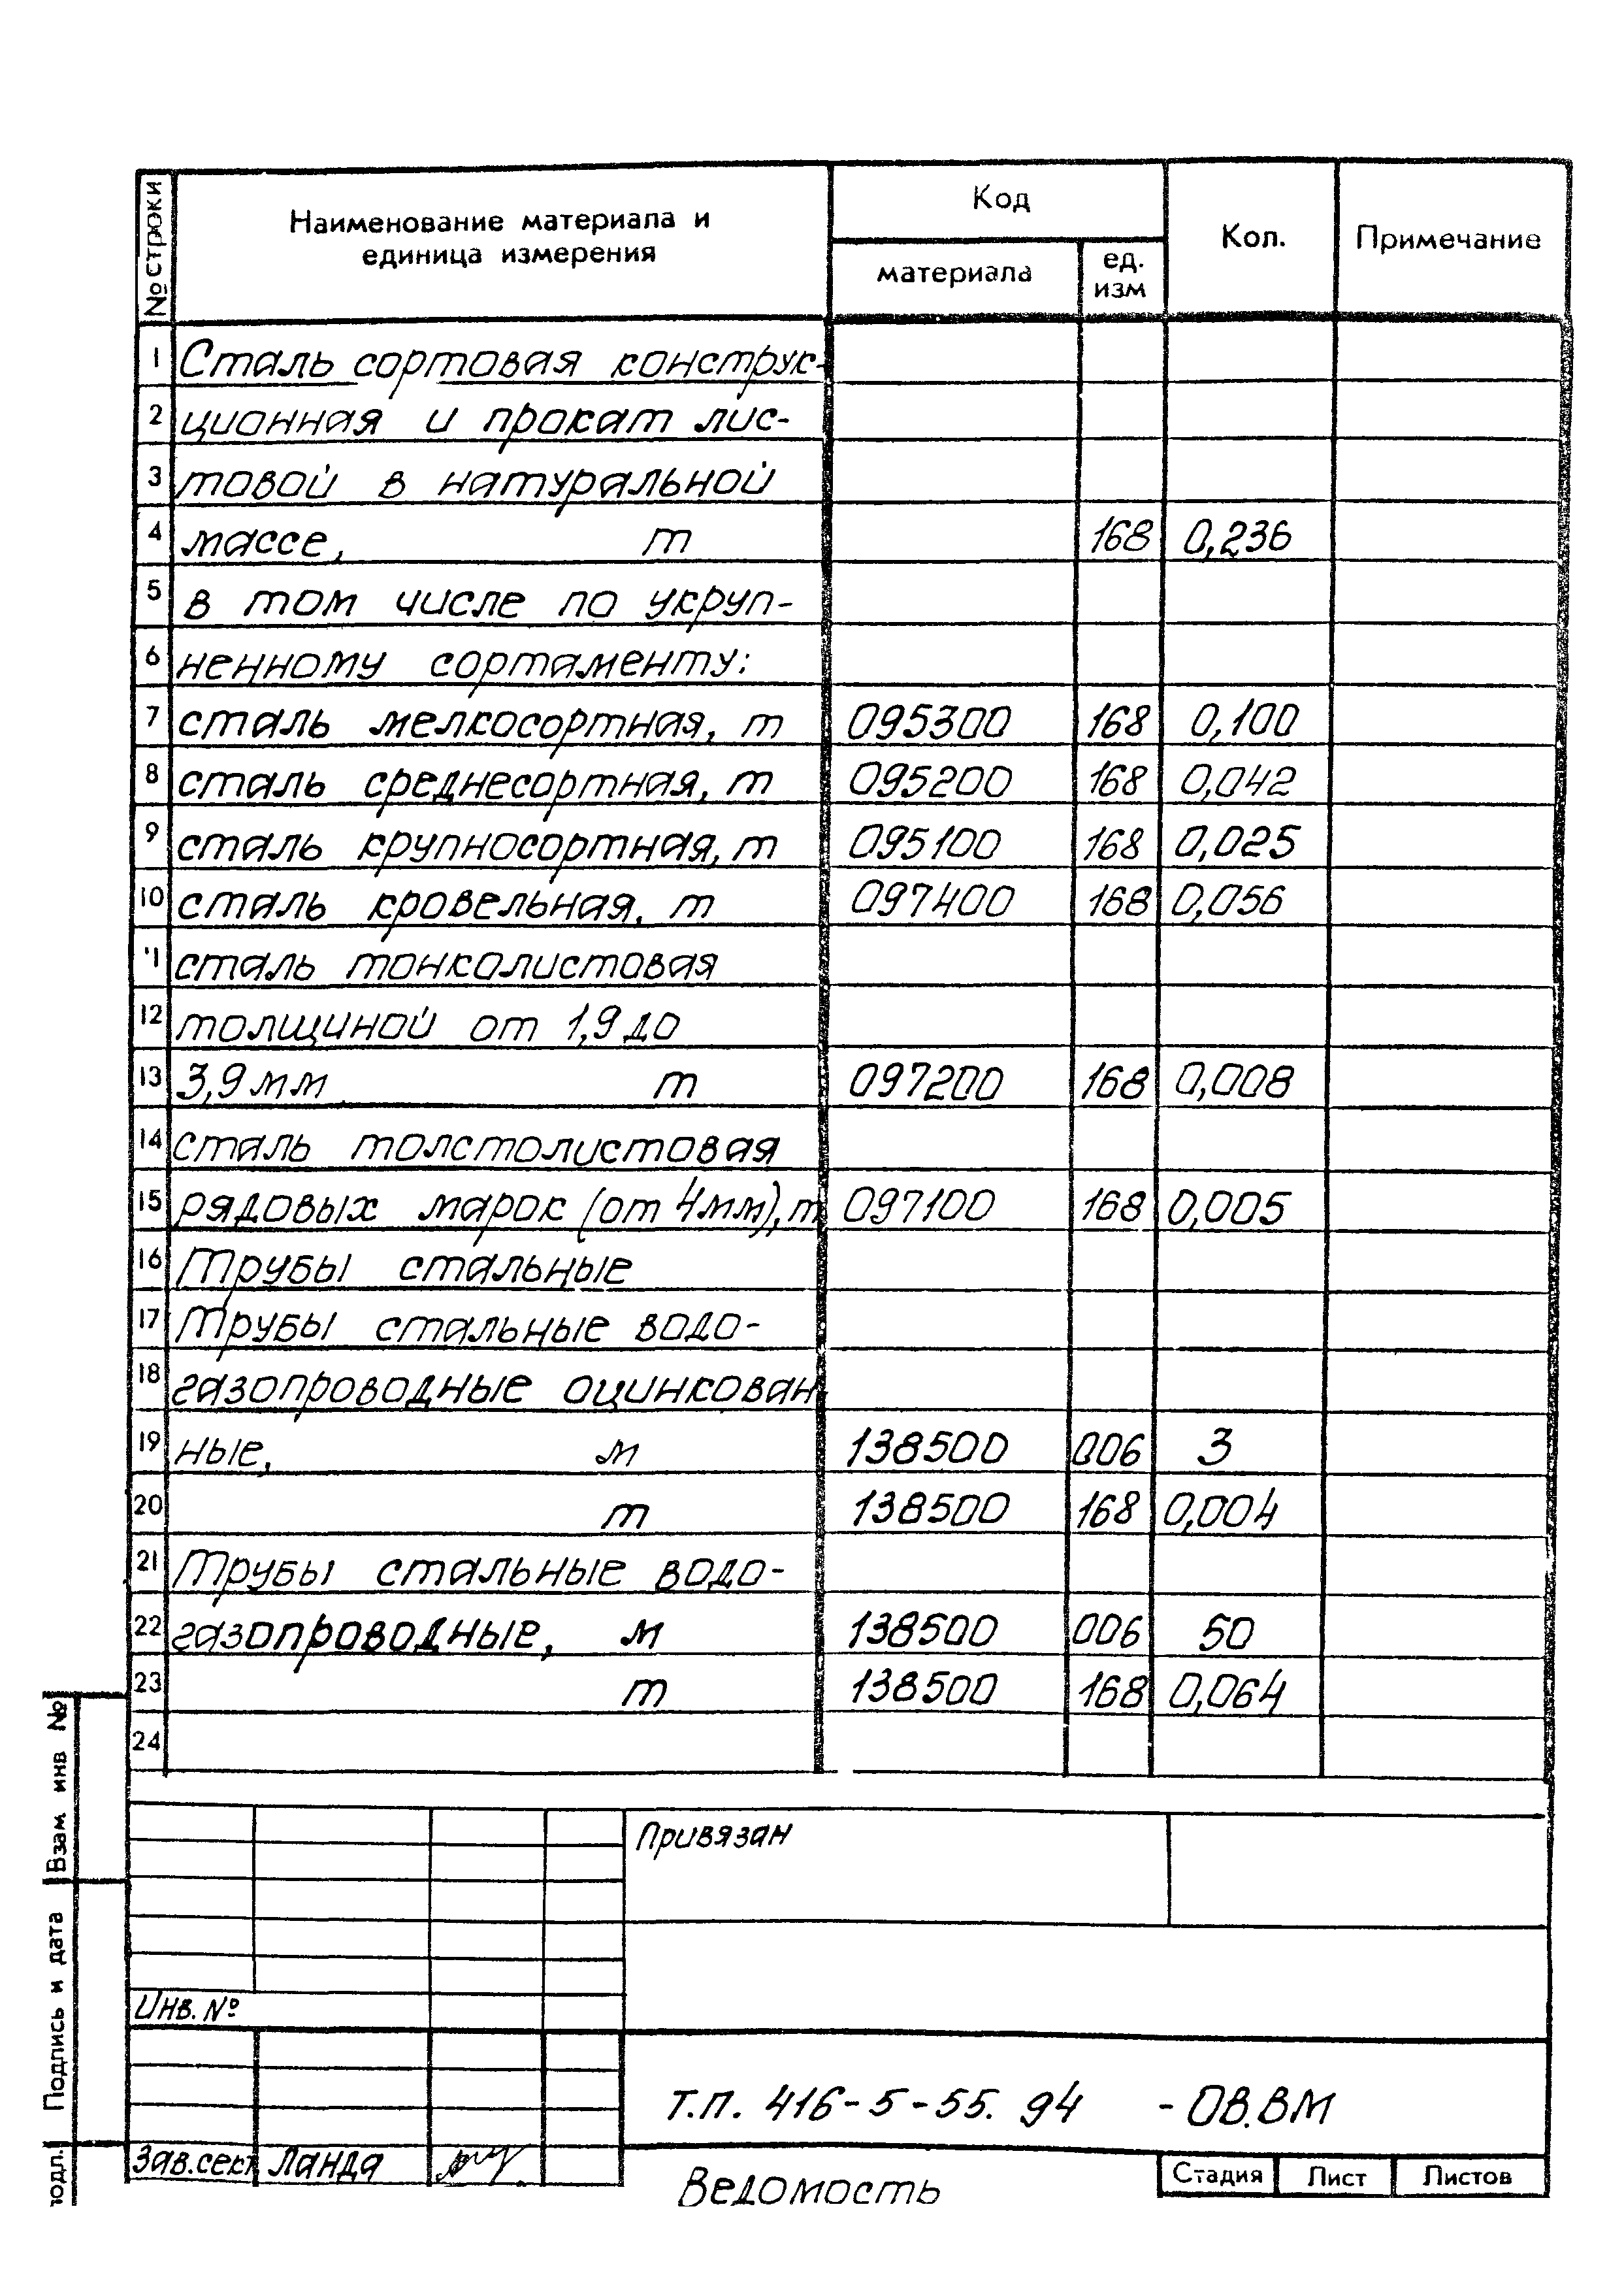 № строки
Наименование материала и
единица измерения
Код
материала
ед.
изм
Кол.
Примечание
1 Сталь сортовая конструк-
2 ционная и прокат лис-
3 товой в натуральной
4 массе, т 168 0,236
5 в том числе по укруп-
6 ненному сортаменту:
7 сталь мелкосортная, т 095300 168 0,100
8 сталь среднесортная, т 095200 168 0,042
9 сталь крупносортная, т 095100 168 0,025
10 сталь кровельная, т 097400 168 0,056
11 сталь тонколистовая
12 толщиной от 1,9 до
13 3,9 мм т 097200 168 0,008
14 сталь толстолистовая
15 рядовых марок (от 4мм), т 097100 168 0,005
16 Трубы стальные
17 Трубы стальные водо-
18 газопроводные оцинкован
19 ные, м 138500 006 3
20 т 138500 168 0,004
21 Трубы стальные водо-
22 газопроводные, м 138500 006 50
23 т 138500 168 0,064
24
Взам инв №
Подпись и дата
подл.
Привязан
Инв. №
Т.П. 416-5-55. 94 - ОВ.ВМ
Зав.сект Ланда
Ведомость
Стадия Лист Листов